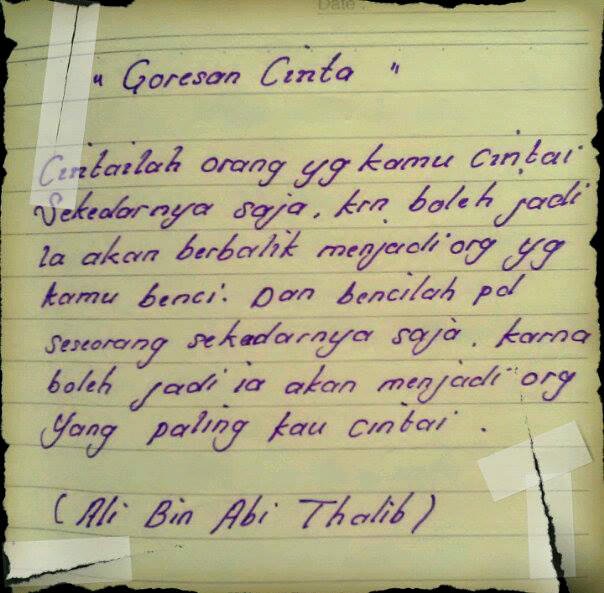 Date :
" Goresan Cinta "
Cintailah orang yg kamu cintai
Sekedarnya saja, krn boleh jadi
Ia akan berbalik menjadi org yg
kamu benci. Dan bencilah pd
seseorang sekedarnya saja, karna
boleh jadi ia akan menjadi org
Yang paling kau cintai.
(Ali Bin Abi Thalib)